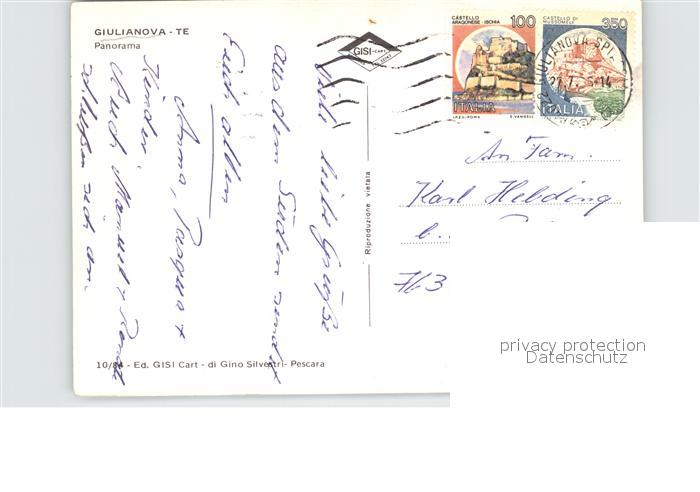 GIULIANOVA - TE
Panorama
GISI-CART
CASTELLO ARAGONESE - ISCHIA 100
ITALIA
I.P.Z.S.-ROMA E. VANGELLI
CASTELLO DI MUSSOMELI 350
ITALIA
GIULIANOVA SPI
Viele liebe Grüße
aus dem Süden sendet
Euch allen
Anna, Pasqua +
Kinder.
Auch Manuel +
schließen sich an.
Riproduzione vietata
An Fam.
Karl Helbling
763
10/84 - Ed. GISI Cart - di Gino Silvestri- Pescara
privacy protection
Datenschutz